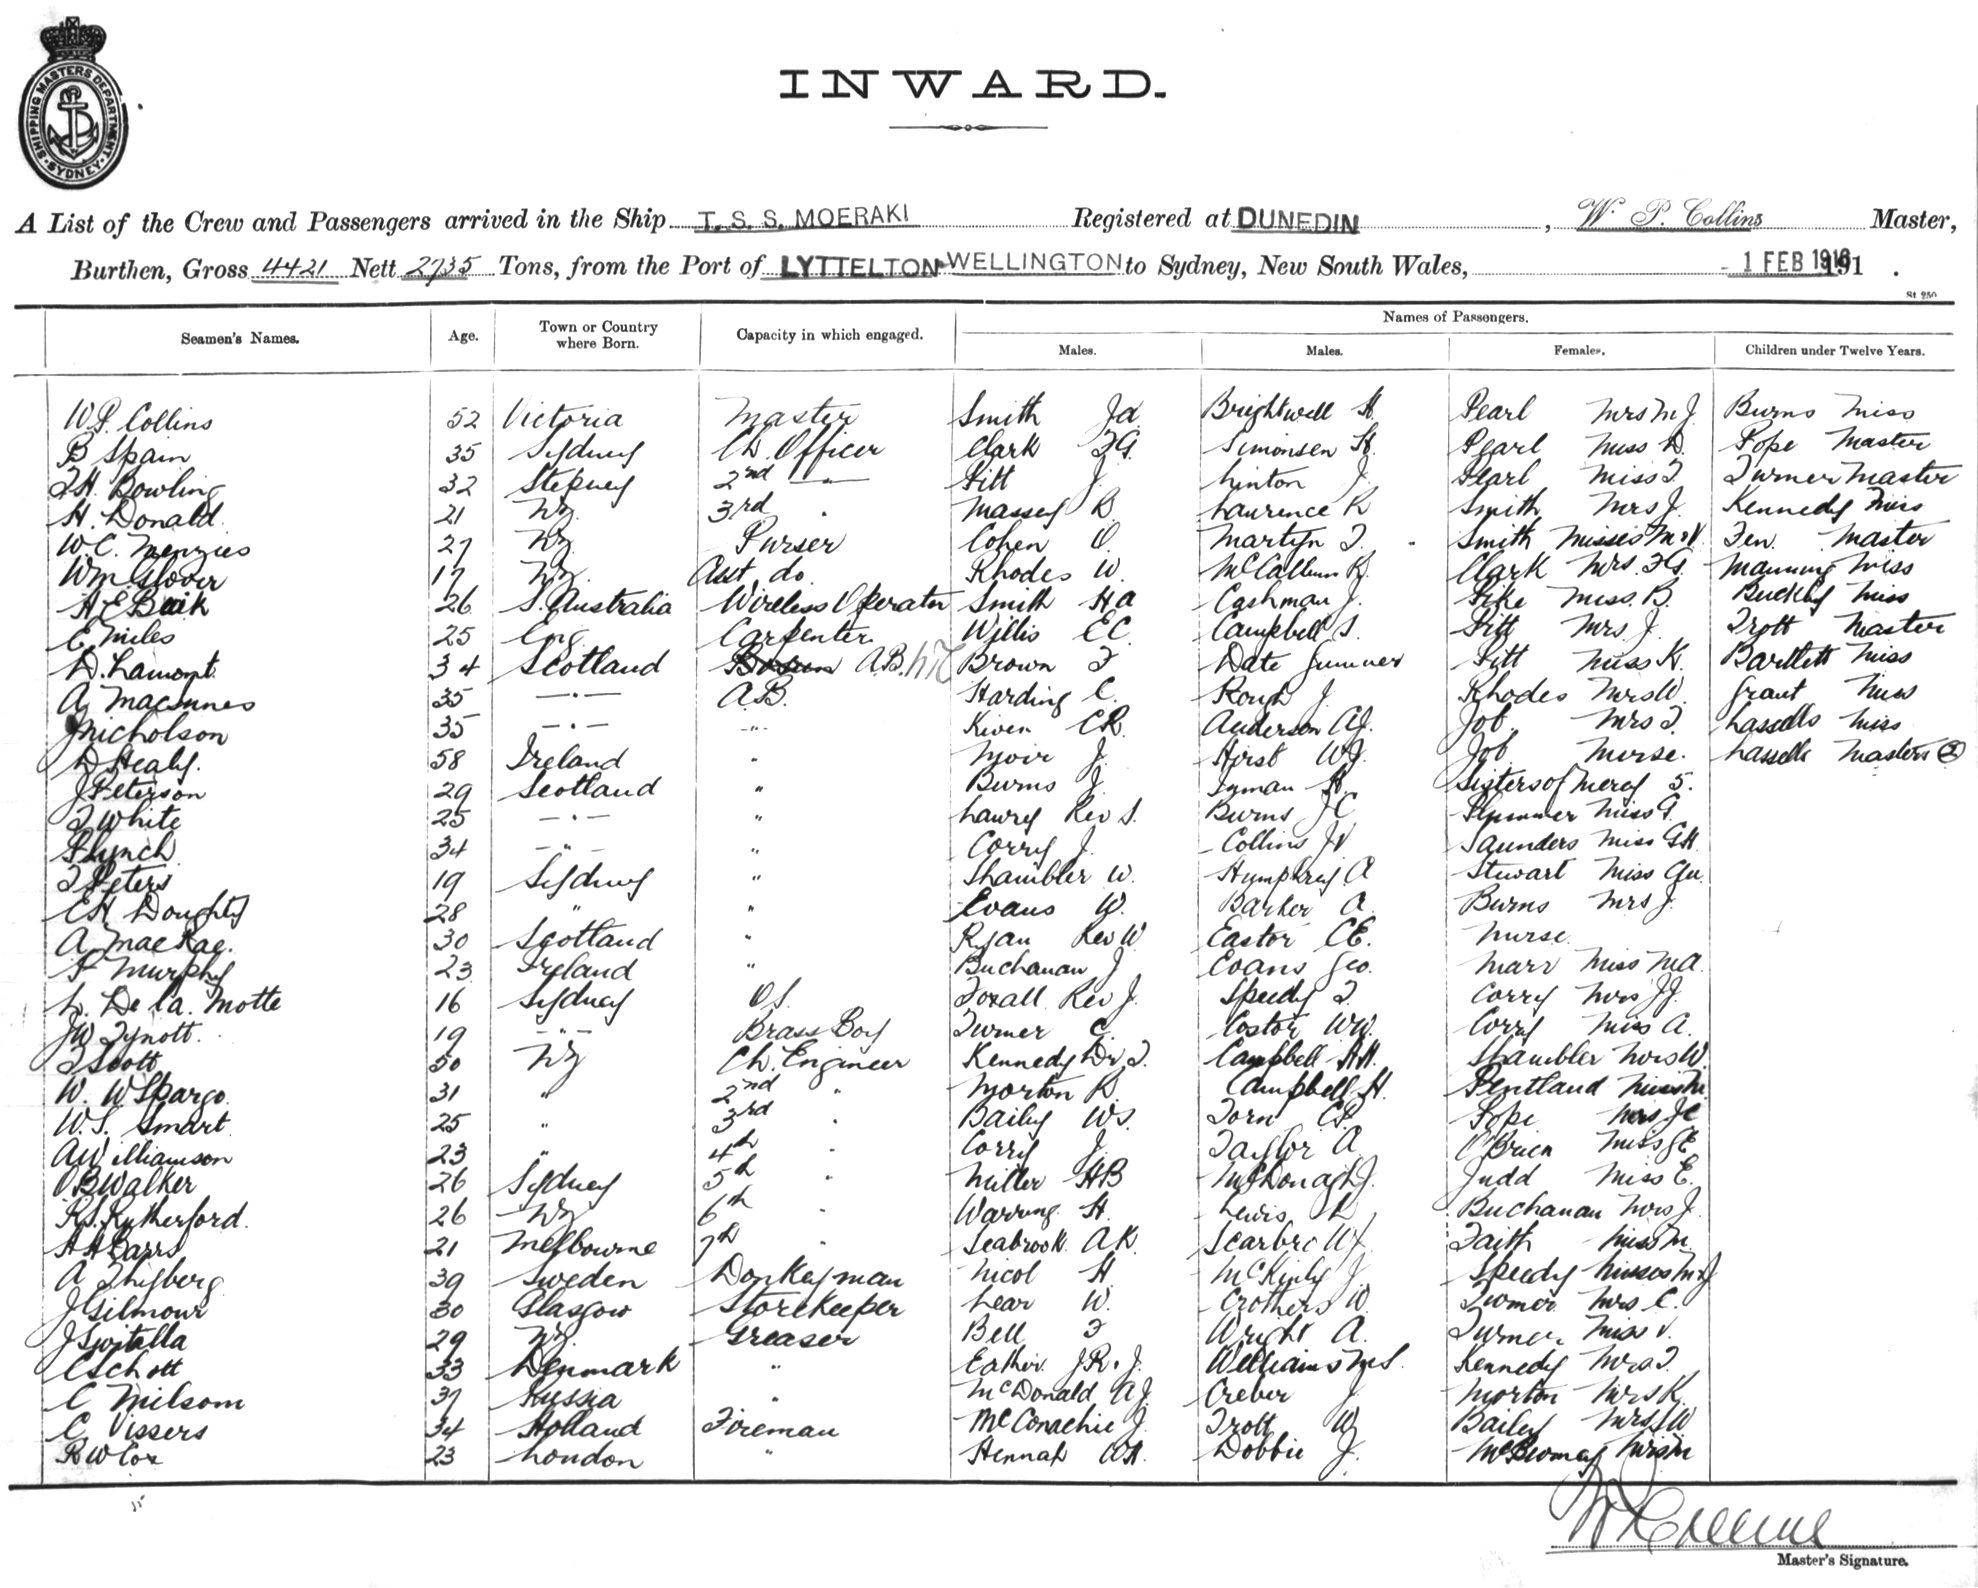 SHIPPING MASTERS DEPARTMENT
SYDNEY
INWARD.
A List of the Crew and Passengers arrived in the Ship T. S. S. MOERAKI Registered at DUNEDIN, W. P. Collins Master,
Burthen, Gross 4421 Nett 2735 Tons, from the Port of LYTTELTON WELLINGTON to Sydney, New South Wales, - 1 FEB 1916 191 .
St 250
Names of Passengers.
Seamen's Names. Age. Town or Country where Born. Capacity in which engaged. Males. Males. Females. Children under Twelve Years.
W.P. Collins 52 Victoria Master Smith Ja Brightwell H. Pearl Mrs M J. Burns Miss
B Spain 35 Sydney Ch. Officer Clark FG. Simonsen H. Pearl Miss D. Pope Master
F.H. Bowling 32 Stepney 2nd —"— Fitt J. Linton J. Pearl Miss F. Turner Master
H. Donald 21 NZ 3rd " Massey B. Laurence R Smith Mrs J. Kennedy Miss
W.C. Menzies 27 NZ Purser Cohen O. Martyn F. Smith Misses M & V. Master
Wm Glover 17 NZ Asst do. Rhodes W. McCallum R. Clark Mrs. FG. Manning Miss
H E 26 S. Australia Wireless Operator Smith Ha Cashman J. Pike Miss. B. Buckley Miss
E Miles 25 Eng. Carpenter Willis EC. Campbell S. Fitt Mrs. J. Trott Master
D. Lamont 34 Scotland Bosun A.B. Brown F Date Sumner Fitt Miss K. Bartlett Miss
A MacInnes 35 —"— A.B. Harding C. Rough J. Rhodes Mrs W. Grant Miss
J Nicholson 35 —"— " Kiven CR. Anderson AJ. Job Mrs F. Lassells Miss
D Healy. 58 Ireland " Moir J. Hirst WJ. Job Nurse. Lassells Masters (2)
J Peterson 29 Scotland " Burns J. Inman H. Sisters of Mercy 5.
F White 25 —"— " Lawry Rev S. Burns JC Plummer Miss G.
P Lynch 34 —"— " Corry J. Collins JV Saunders Miss GH.
F Peters 19 Sydney " Shambler W. Humphrey A Stewart Miss
EH Doughty 28 " " Evans W. Barker A. Burns Mrs J.
A MacRae. 30 Scotland " Ryan Rev W. Eastor CE. Nurse.
P Murphy 23 Ireland " Buchanan J Evans Geo. Marr Miss MA.
L. De La. Motte 16 Sydney O.S. Foxall Rev J. Speedy F. Corry Mrs JJ.
JW Synott. 19 —"— Brass Boy Turner C. Costor WW. Corry Miss A.
F Scott 50 NZ Ch. Engineer Kennedy Dr F. Campbell AH. Shambler Mrs W.
W. W Spargo. 31 " 2nd " Morton R. Campbell H. Pentland Miss M.
W. S. Smart 25 " 3rd " Bailey WS. Torn CP. Pope Mrs JC
A Williamson 23 " 4th " Corry J. Taylor A O'Brien Miss JE.
O B Walker 26 Sydney 5th " Miller HB McDonagh J. Judd Miss E.
R.S. Rutherford. 26 NZ 6th " Warring H. Lewis L Buchanan Mrs J.
H H Barrs 21 Melbourne 7th " Seabrook AK. Scarbro WJ. Faith Miss M.
A Thylberg 39 Sweden Donkeyman Nicol H McKinly J. Speedy Misses M & J
J Gilmour 30 Glasgow Storekeeper Lear W. Crothers W. Turner Mrs C.
J Switalla 29 NZ Greaser Bell F Wright A. Turner Miss V.
C Schott 33 Denmark " Eather J.R.J. Williams MS. Kennedy Mrs F.
C Milsom 37 Russia " McDonald AJ. Creber J Morton Mrs R.
C Vissers 34 Holland Fireman McConachie J. Trott W. Bailey Mrs JW
R W Cox 23 London " Hennah WH. Dobbie J. Mrs M
Master's Signature.